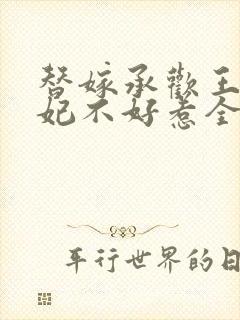 替嫁承歡王
妃不好惹全
平行世界的日